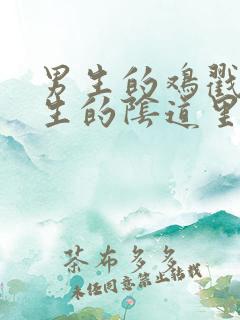 男生的鸡戳
生的阴道里
茶布多多
未经同意禁止转载